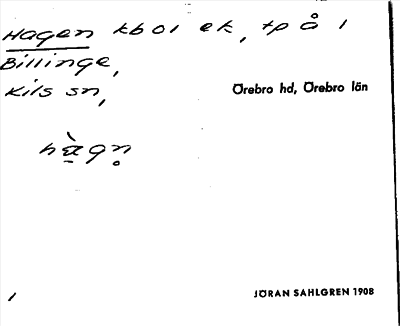 Hagen kbol ek, tp å 1
Billinge,
Kils sn,
Örebro hd, Örebro län
hàgn̥
1
JÖRAN SAHLGREN 1908